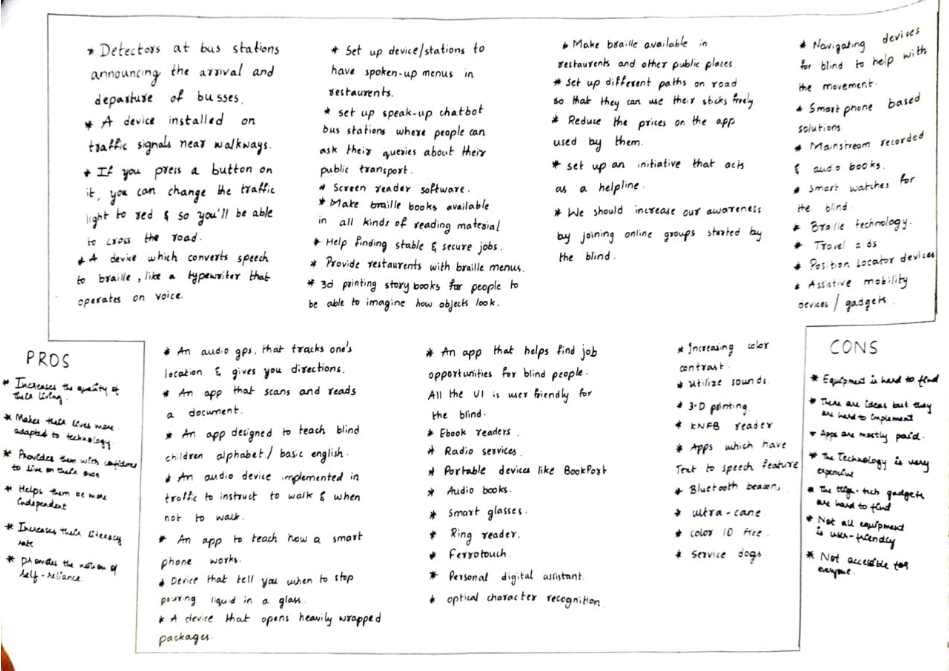 * Detectors at bus stations
announcing the arrival and
departure of busses.
* A device installed on
traffic signals near walkways.
* If you press a button on
it, you can change the traffic
light to red & so you'll be able
to cross the road.
* A device which converts speech
to braille, like a typewriter that
operates on voice.
* Set up device/stations to
have spoken-up menus in
restaurents.
* set up speak-up chatbot
bus stations where people can
ask their queries about their
public transport.
* Screen reader software.
* Make braille books available
in all kinds of reading material
* Help finding stable & secure jobs.
* Provide restaurents with braille menus.
* 3d printing story books for people to
be able to imagine how objects look.
* Make braille available in
restaurents and other public places
* Set up different paths on road
so that they can use their sticks freely
* Reduce the prices on the app
used by them.
* set up an initiative that acts
as a helpline.
* We should increase our awareness
by joining online groups started by
the blind.
* Navigating devices
for blind to help with
the movement.
* Smart phone based
solutions
* Mainstream recorded
& audio books.
* Smart watches for
the blind
* Braille technology.
* Travel aids
* Position Locator devices
* Assistive mobility
devices / gadgets.
PROS
* Increases the quality of
their living.
* Makes their lives more
adapted to technology.
* Provides them with confidence
to live on their own
* Helps them be more
independent
* Increases their literacy
rate
* provides the notion of
self-reliance.
* An audio gps, that tracks one's
location & gives you directions.
* An app that scans and reads
a document.
* An app designed to teach blind
children alphabet / basic english.
* An audio device implemented in
traffic to instruct to walk & when
not to walk.
* An app to teach how a smart
phone works.
* Device that tell you when to stop
pouring liquid in a glass.
* A device that opens heavily wrapped
packages.
* An app that helps find job
opportunities for blind people.
All the UI is user friendly for
the blind.
* Ebook readers.
* Radio services.
* Portable devices like BookPort
* Audio books.
* Smart glasses.
* Ring reader.
* Ferrotouch.
* Personal digital assistant.
* optical character recognition.
* Increasing color
contrast.
* Utilize sounds.
* 3-D printing.
* KNFB reader
* Apps which have
Text to speech feature
* Bluetooth beacon,
* ultra-cane.
* color ID Free.
* Service dogs
CONS
* Equipment is hard to find
* There are ideas but they
are hard to implement
* Apps are mostly paid.
* The Technology is very
expensive
* The High-tech gadgets
are hard to find
* Not all equipment
is user-friendly
* Not accessible for
everyone.